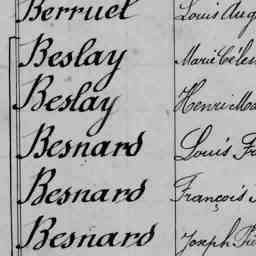 Berruel Louis Aug
Beslay Marie Célen
Beslay Henri Ma
Besnard Louis Fr
Besnard François
Besnard Joseph